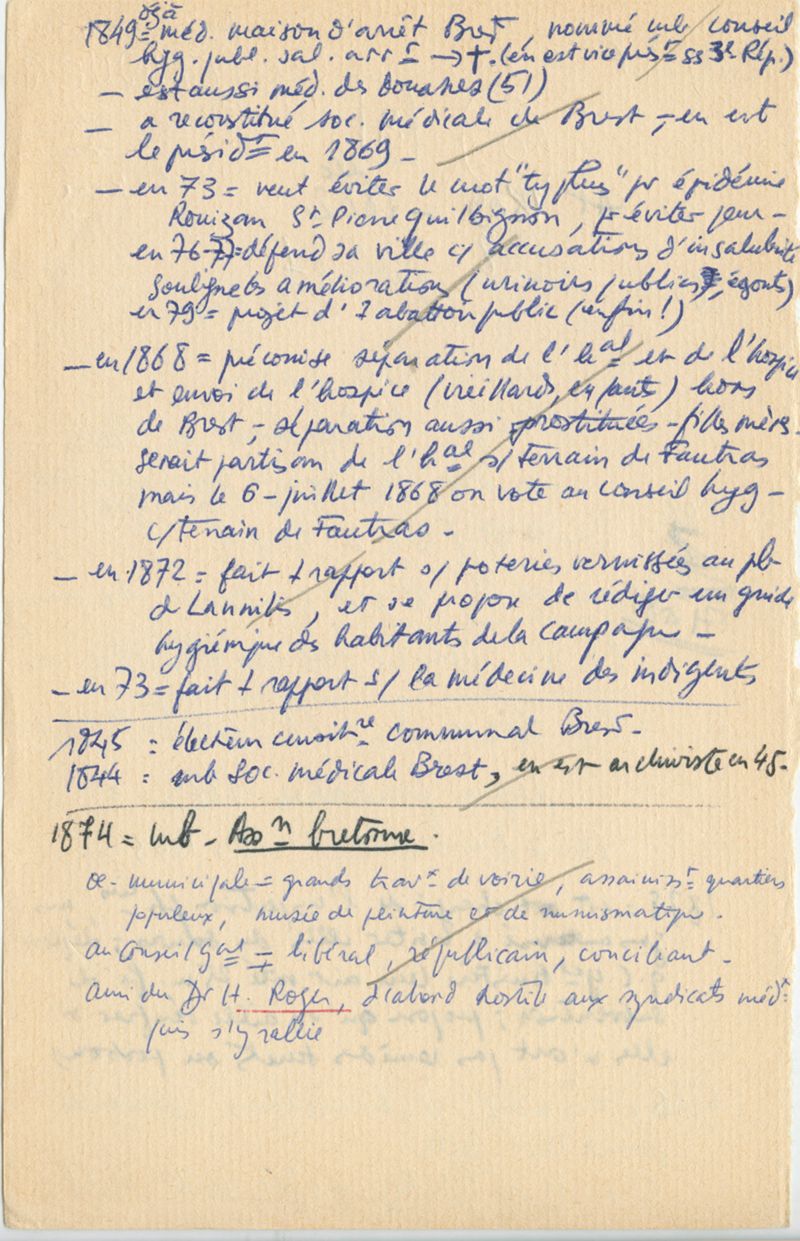 déjà
1849 = méd. maison d'arrêt Brest, nommé mb conseil
hyg. publ. sal. arrt → †. (en est vice prést ss 3e Rép.)
— est aussi méd. des Douanes (51)
— a reconstitué soc. médicale de Brest, – en est
le présidt en 1869 –
— en 73 = veut éviter le mot "typhus" pr épidémie
Rouizan St Pierre Quilbignon, pr éviter peur –
en 76-77 = défend sa ville c/ accusations d'insalubrité
souligne les améliorations (urinoirs publics, égouts)
en 79 = projet d'1 abattoir public (enfin!)
— en 1868 = préconise séparation de l'hal et de l'hospice
et envoi de l'hospice (vieillards, enfants) hors
de Brest, – séparation aussi prostituées – filles mères.
serait partisan de l'hal s/ terrain de Fautras
mais le 6 – juillet 1868 on vote au conseil hyg –
c/ terrain de Fautras –
— en 1872 = fait 1 rapport s/ poteries vernissées au pb
d Lannilis, et se propose de rédiger un guide
hygiénique des habitants de la campagne –
— en 73 = fait 1 rapport s/ la médecine des indigents
1845 = électeur censitre communal Brest –
1844 = mb Soc. médicale Brest, en est archiviste en 45 –
1874 = mb – Assn bretonne.
œ. municipale = grands travx de voirie, assainisst quartiers
populeux, musée de peinture et de numismatique.
au Conseil gal = libéral, républicain, conciliant –
ami du Dr H. Roger, d'abord hostile aux syndicats médx
puis s'y rallie